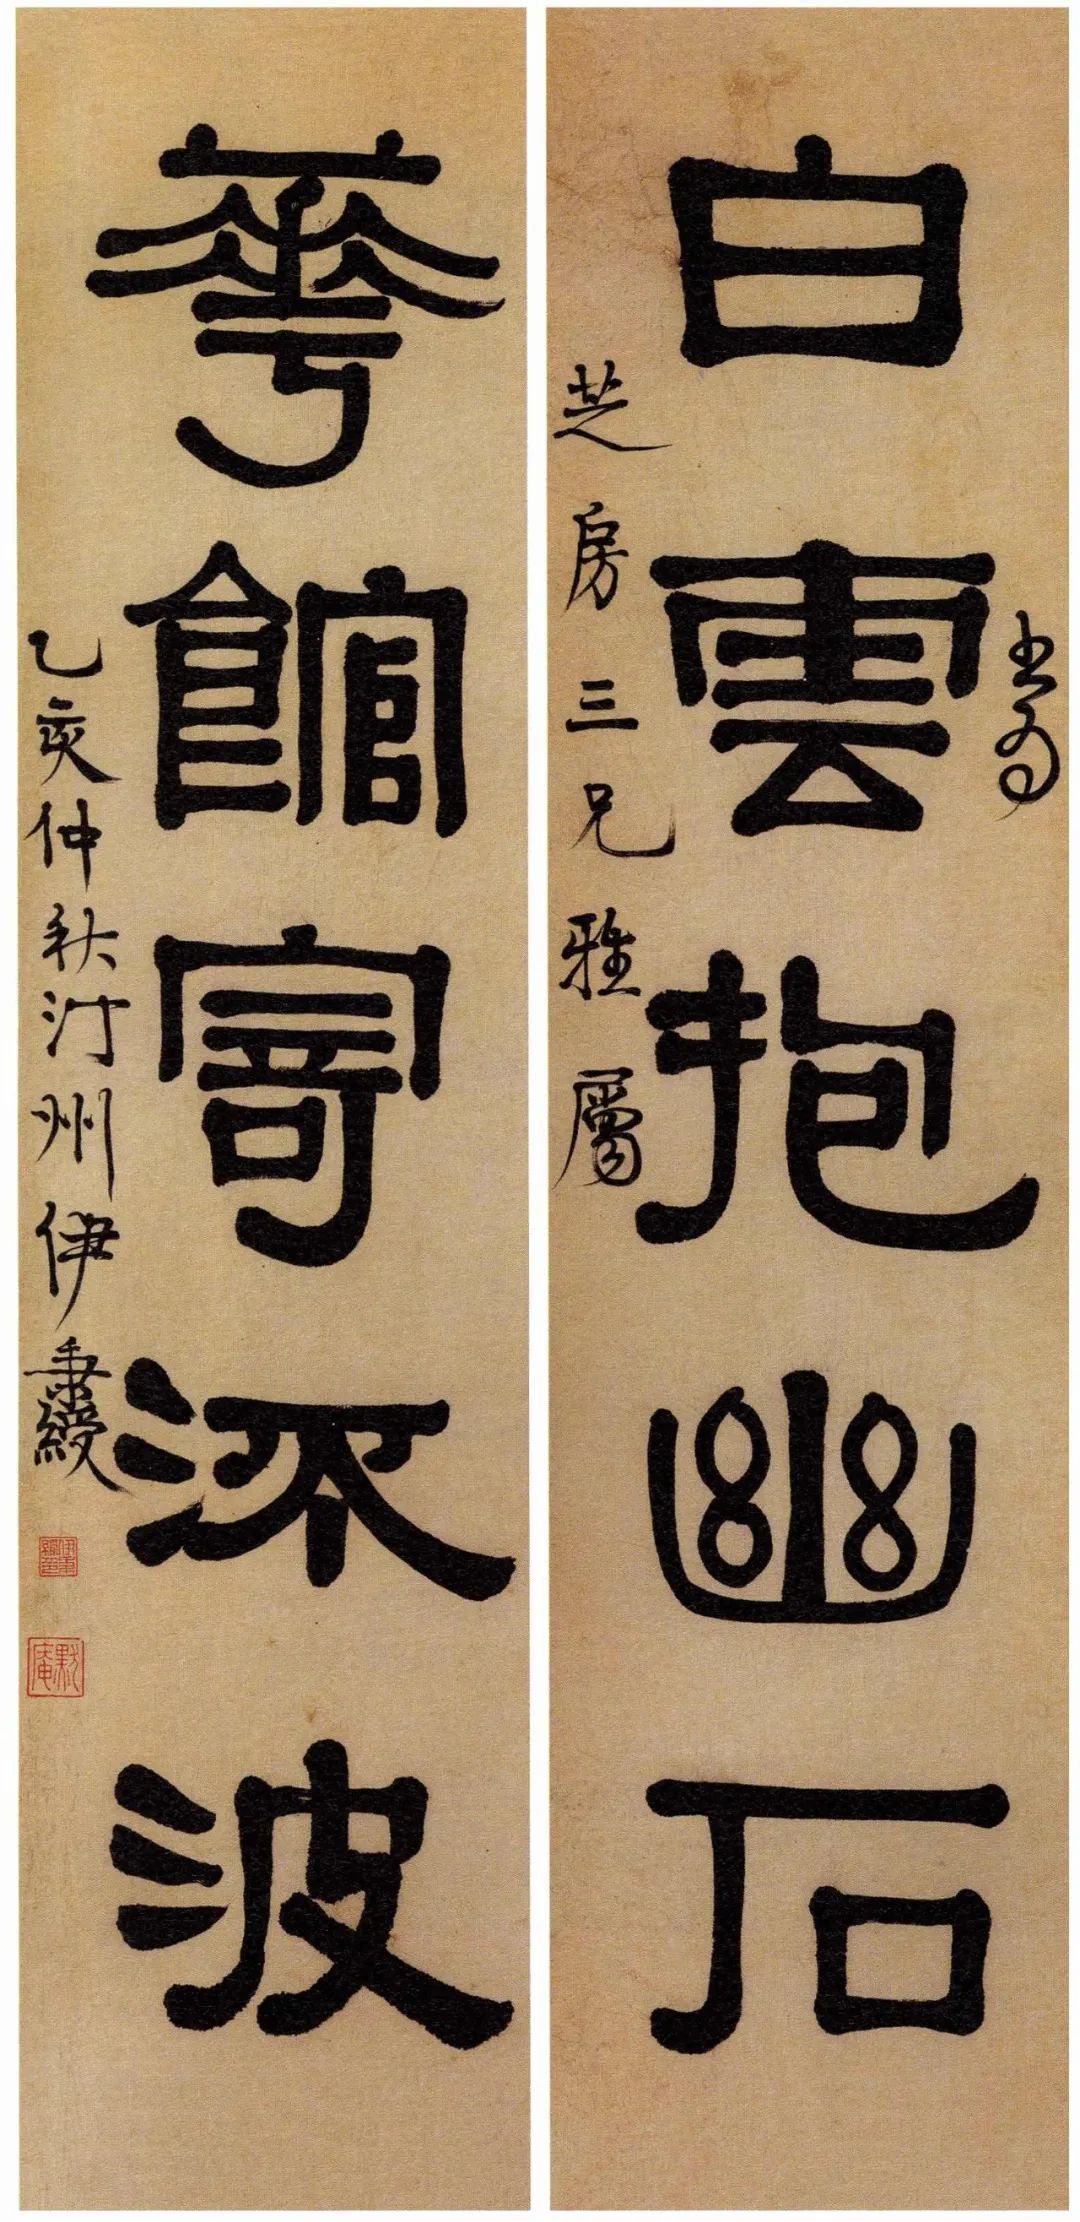 書為
白雲抱幽石
芝房三兄雅屬
華館寄流波
乙亥仲秋汀州伊秉綬
伊秉綬印
默庵